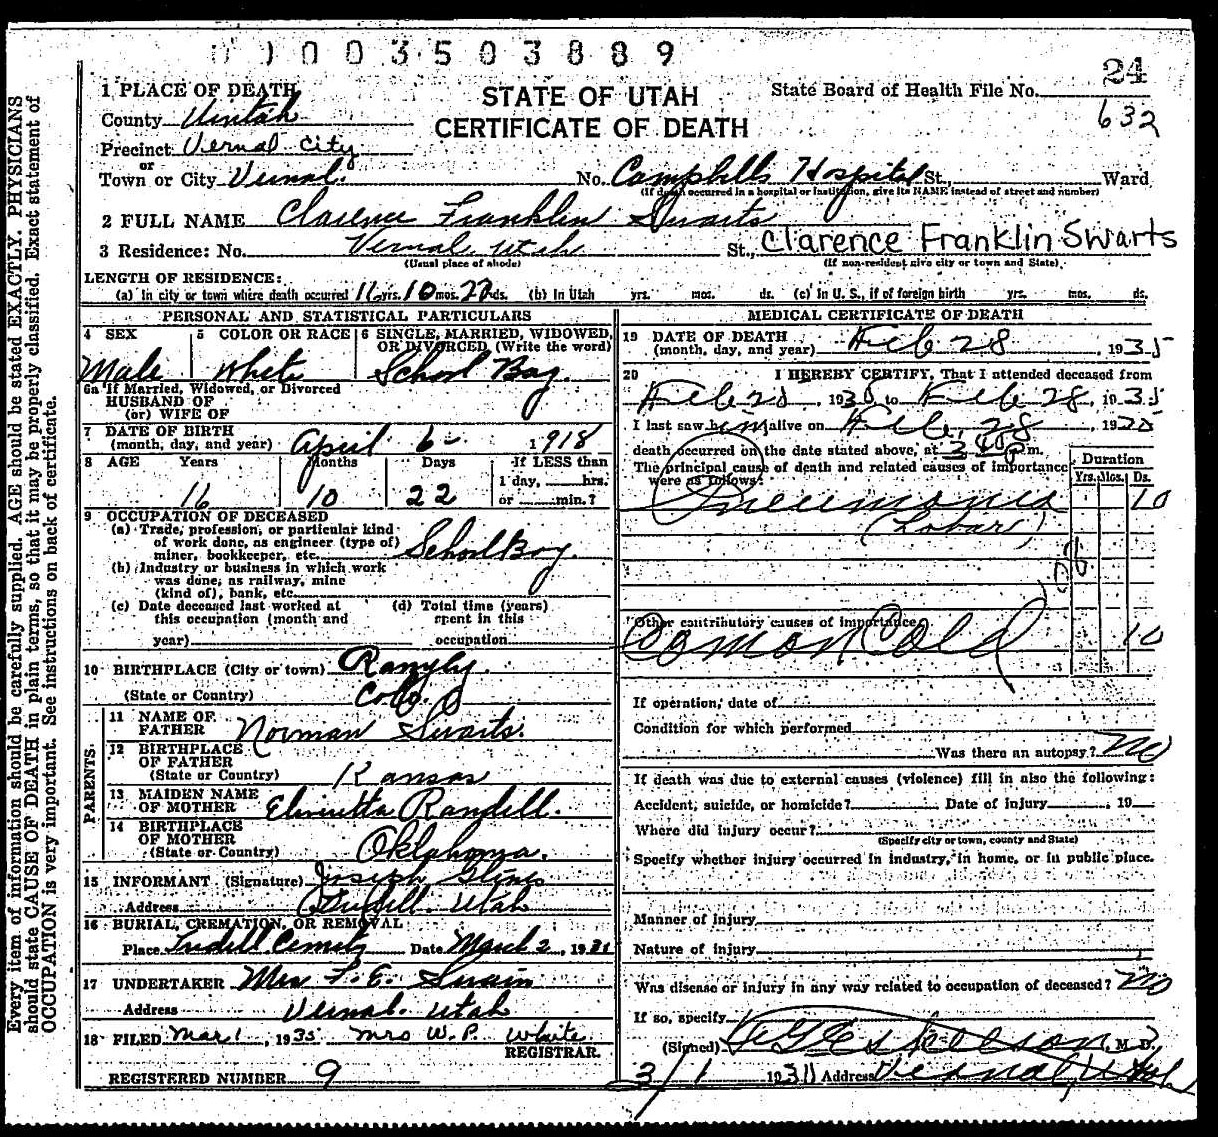 0 1 0 0 3 5 0 3 8 8 9
24
1 PLACE OF DEATH
STATE OF UTAH
State Board of Health File No.
County Uintah
CERTIFICATE OF DEATH
632
Precinct Vernal City
or
Town or City Vernal. No. Campbells Hospital St., Ward
(If death occurred in a hospital or institution, give its NAME instead of street and number)
2 FULL NAME Clarence Franklin Swarts
3 Residence: No. Vernal Utah St., Clarence Franklin Swarts
(Usual place of abode) (If non-resident give city or town and State)
LENGTH OF RESIDENCE:
(a) In city or town where death occurred 16 yrs. 10 mos. 22 ds. (b) In Utah yrs. mos. ds. (c) In U. S., if of foreign birth yrs. mos. ds.
PERSONAL AND STATISTICAL PARTICULARS
4 SEX 5 COLOR OR RACE 6 SINGLE, MARRIED, WIDOWED, OR DIVORCED (Write the word)
Male White School Boy.
6a If Married, Widowed, or Divorced
HUSBAND OF
(or) WIFE OF
7 DATE OF BIRTH
(month, day, and year) April 6 1918
8 AGE Years Months Days If LESS than
1 day, hrs.
16 10 22 or min.?
9 OCCUPATION OF DECEASED
(a) Trade, profession, or particular kind
of work done, as engineer (type of)
miner, bookkeeper, etc. School Boy.
(b) Industry or business in which work
was done, as railway, mine
(kind of), bank, etc.
(c) Date deceased last worked at (d) Total time (years)
this occupation (month and spent in this
year) occupation
10 BIRTHPLACE (City or town) Rangly
(State or Country) Colo.
PARENTS.
11 NAME OF
FATHER Norman Swarts.
12 BIRTHPLACE
OF FATHER
(State or Country) Kansas
13 MAIDEN NAME
OF MOTHER Randell.
14 BIRTHPLACE
OF MOTHER
(State or Country) Oklahoma.
15 INFORMANT (Signature) Joseph Glines
Address Utah
16 BURIAL, CREMATION, OR REMOVAL
Place Date March 2, 19
17 UNDERTAKER Mrs F. E. Swain
Address Vernal. Utah
18 FILED Mar 1, 1935 Mrs W. P. White
REGISTRAR.
REGISTERED NUMBER 9
MEDICAL CERTIFICATE OF DEATH
19 DATE OF DEATH
(month, day, and year) Feb 28, 1935
20 I HEREBY CERTIFY, That I attended deceased from
Feb, 193 to Feb 28, 1935
I last saw him alive on Feb, 28, 19
death occurred on the date stated above, at m.
The principal cause of death and related causes of importance
were as follows:
Duration
Yrs. Mos. Ds.
Pneumonia 10
(Lobar)
Other contributory causes of importance
Comon Cold 10
If operation, date of
Condition for which performed
Was there an autopsy? No
If death was due to external causes (violence) fill in also the following:
Accident, suicide, or homicide? Date of injury, 19
Where did injury occur?
(Specify city or town, county and State)
Specify whether injury occurred in industry, in home, or in public place.
Manner of injury
Nature of injury
Was disease or injury in any way related to occupation of deceased? No
If so, specify
(Signed) Eskelson, M. D.
3/1 19 Address Vernal, Utah
Every item of information should be carefully supplied. AGE should be stated EXACTLY. PHYSICIANS
should state CAUSE OF DEATH in plain terms, so that it may be properly classified. Exact statement of
OCCUPATION is very important. See instructions on back of certificate.